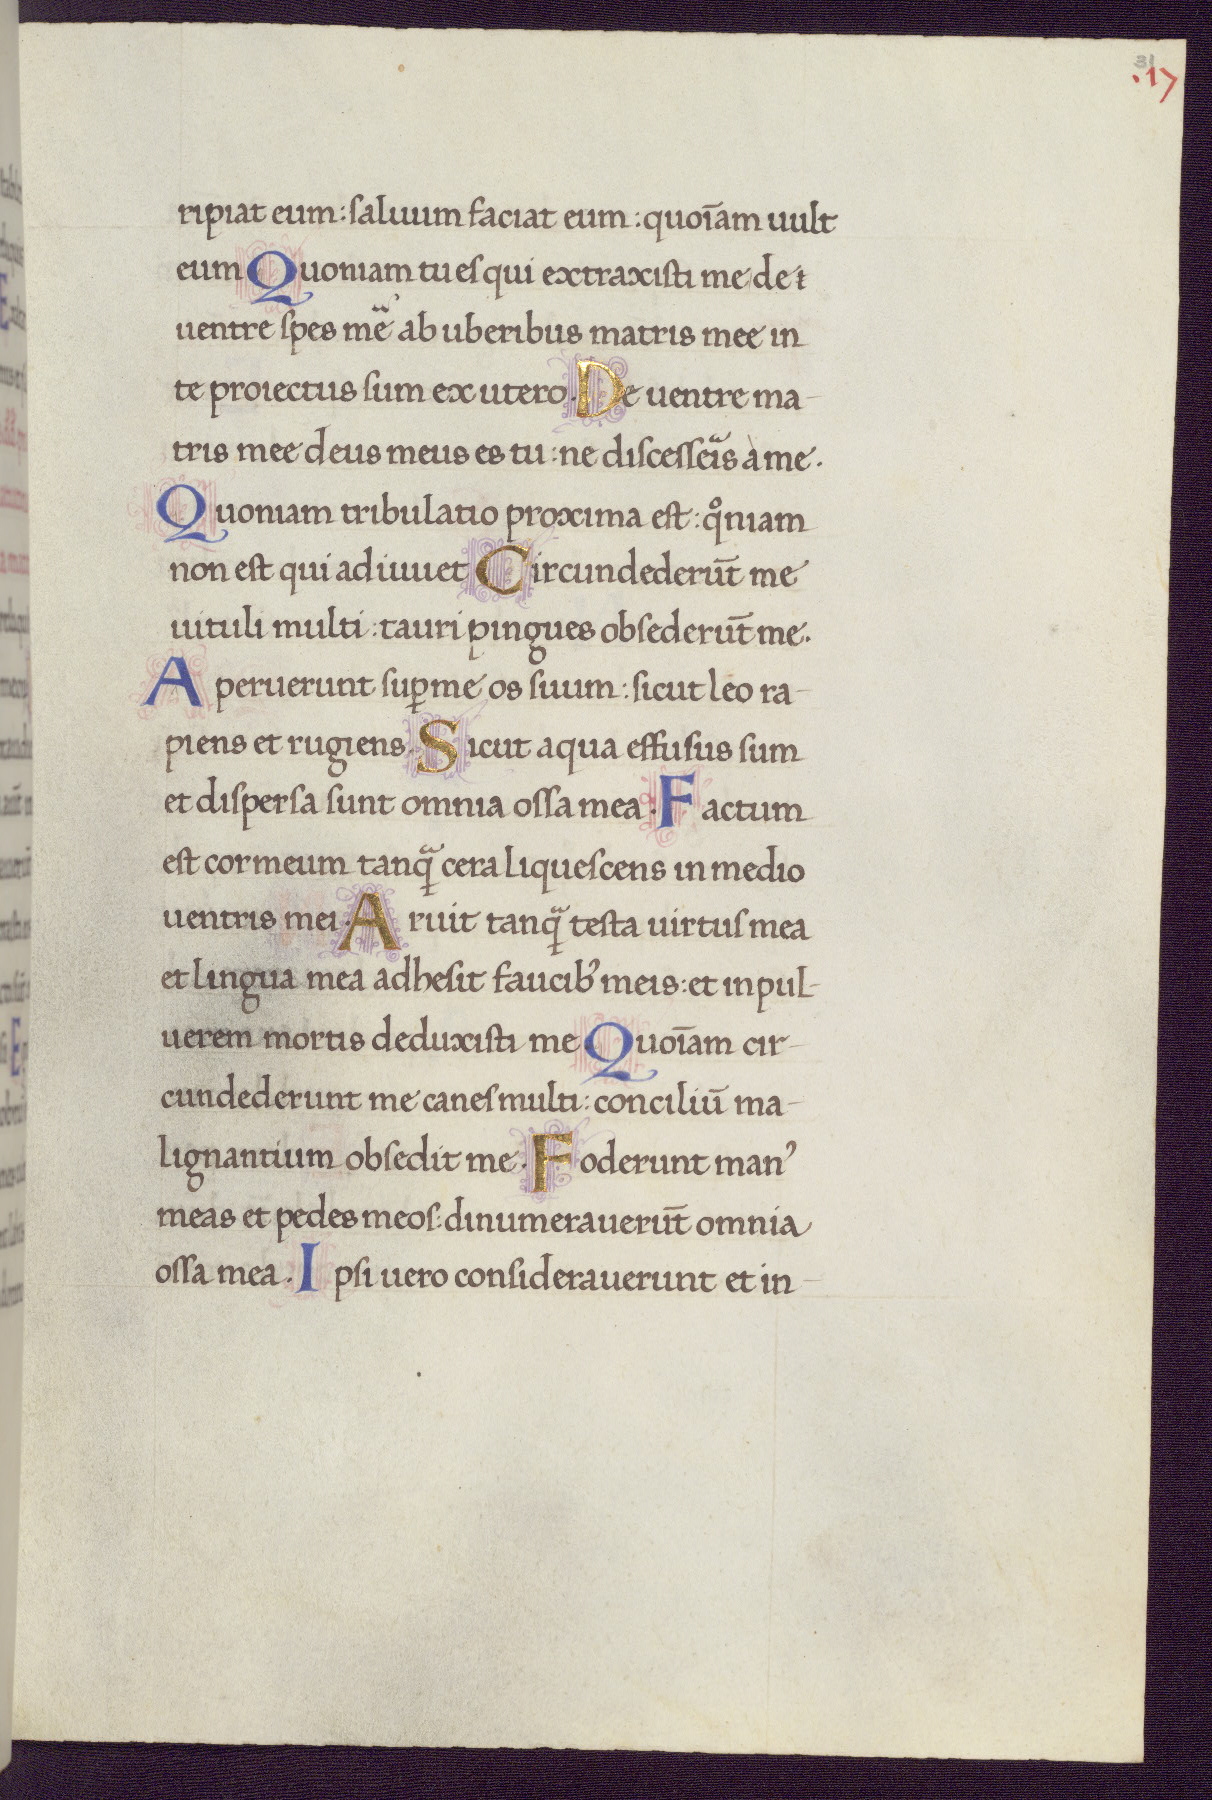 31
.17
ripiat eum: saluum faciat eum: quoīam uult
eum Quoniam tu es qui extraxisti me de
uentre spes mea ab uberibus matris mee in
te proiectus sum ex utero. De uentre ma-
tris mee deus meus es tu: ne discesseris a me.
Quoniam tribulatio proxima est: qͦniam
non est qui adiuuet Circundederūt me
uituli multi: tauri pingues obsederūt me.
Aperuerunt suꝑ me os suum: sicut leo ra-
piens et rugiens. Sicut aqua effusus sum
et dispersa sunt omnia ossa mea. Factum
est cor meum tanꝗᷓ cera liquescens in medio
uentris mei. Aruit tanꝗᷓ testa uirtus mea
et lingua mea adhesit faucibꝰ meis: et in pul-
uerem mortis deduxisti me. Quoīam cir-
cundederunt me canes multi: conciliū ma-
lignantium obsedit me. Foderunt manꝰ
meas et pedes meos: dinumerauerūt omnia
ossa mea. Ipsi uero considerauerunt et in-